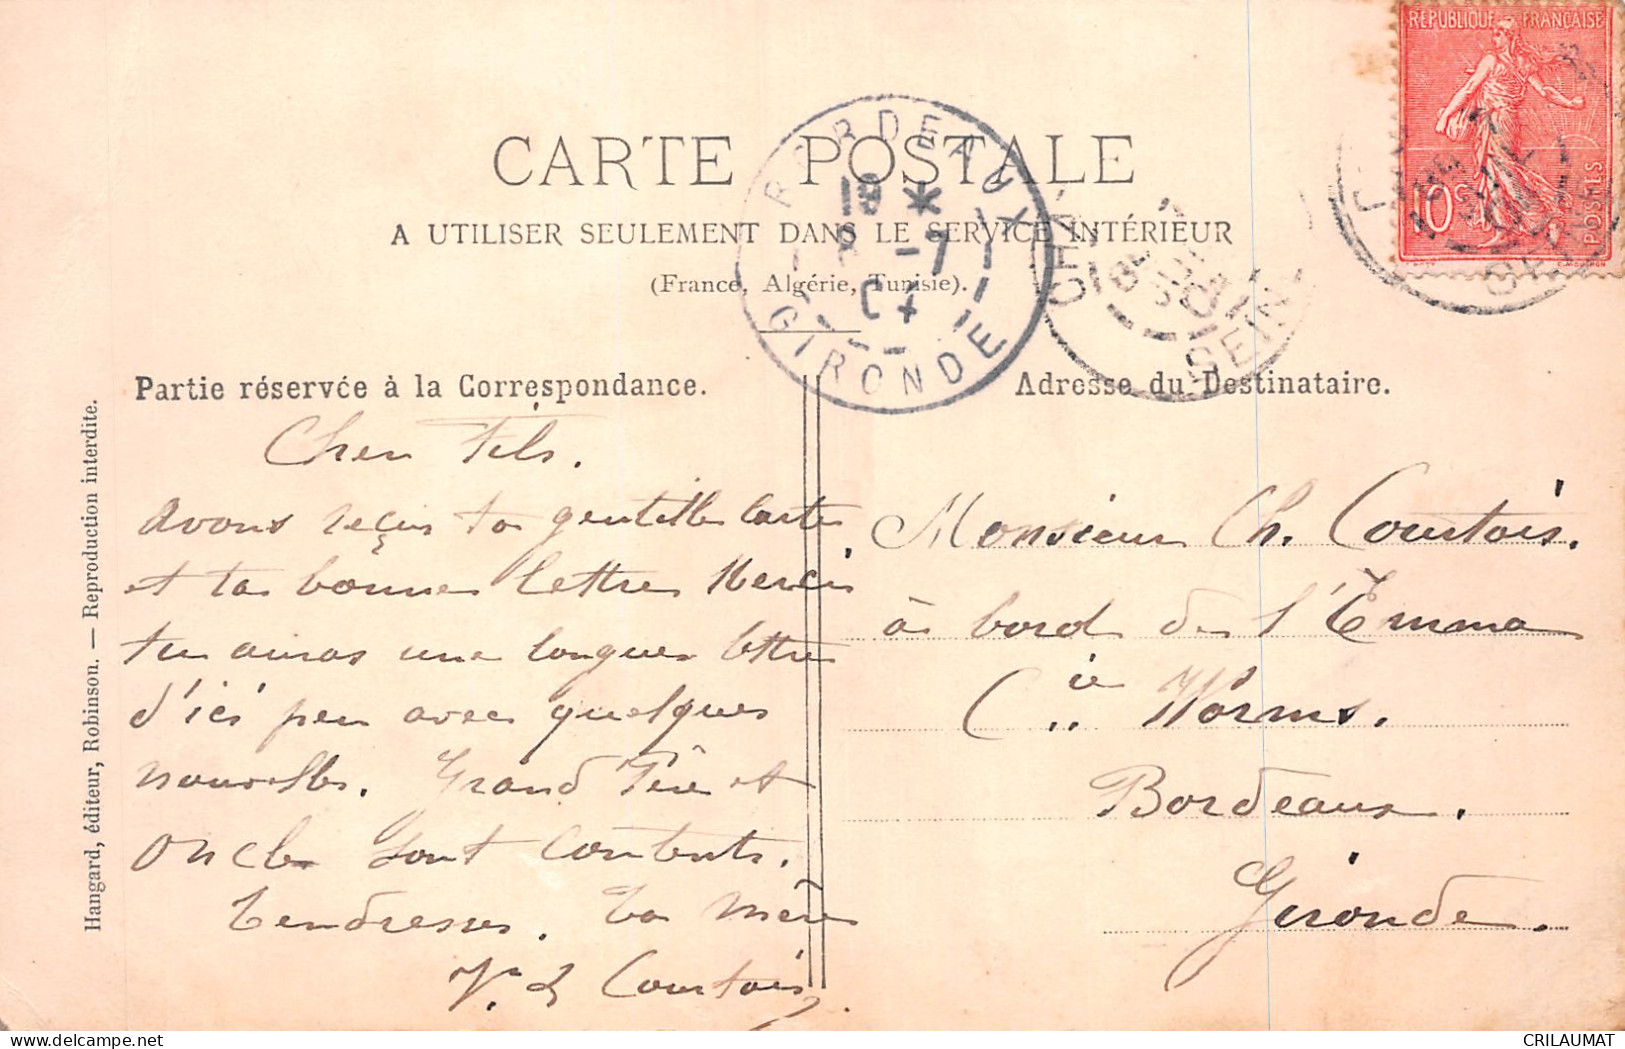 RÉPUBLIQUE FRANÇAISE
10c
POSTES
CARTE POSTALE
A UTILISER SEULEMENT DANS LE SERVICE INTÉRIEUR
(France, Algérie, Tunisie).
BORDEAUX
18 *
8 -7
04
GIRONDE
SEINE
Partie réservée à la Correspondance.
Adresse du Destinataire.
Hangard, éditeur, Robinson. — Reproduction interdite.
Cher Fils.
Avons reçu ta gentille carte
et ta bonne lettre Merci
tu auras une longue lettre
d'ici peu avec quelques
nouvelles. Grand Père et
Oncle sont contents.
Tendresses. Ta mère
Courtois
Monsieur Ch. Courtois.
à bord de l'Emma
Cie Worms.
Bordeaux.
Gironde.
CRILAUMAT